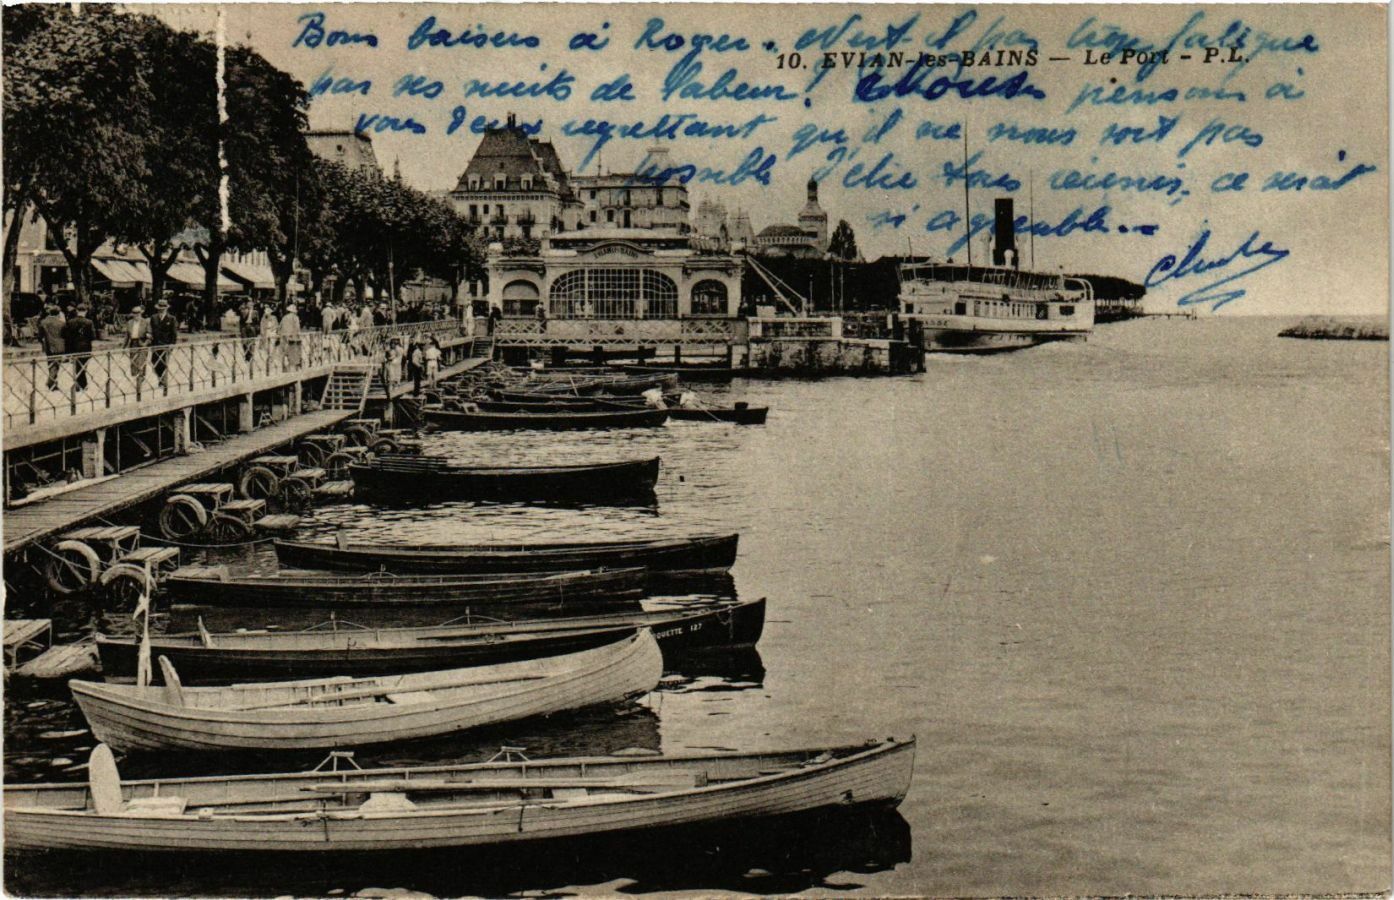 Bons baisers à Roger. N'est il pas trop fatigué
10. EVIAN-les-BAINS — Le Port - P.L.
par ses nuits de labeur! Nous pensons à
vous deux regrettant qu'il ne nous soit pas
possible d'être tous réunis, ce serait
si agréable..
QUETTE 127